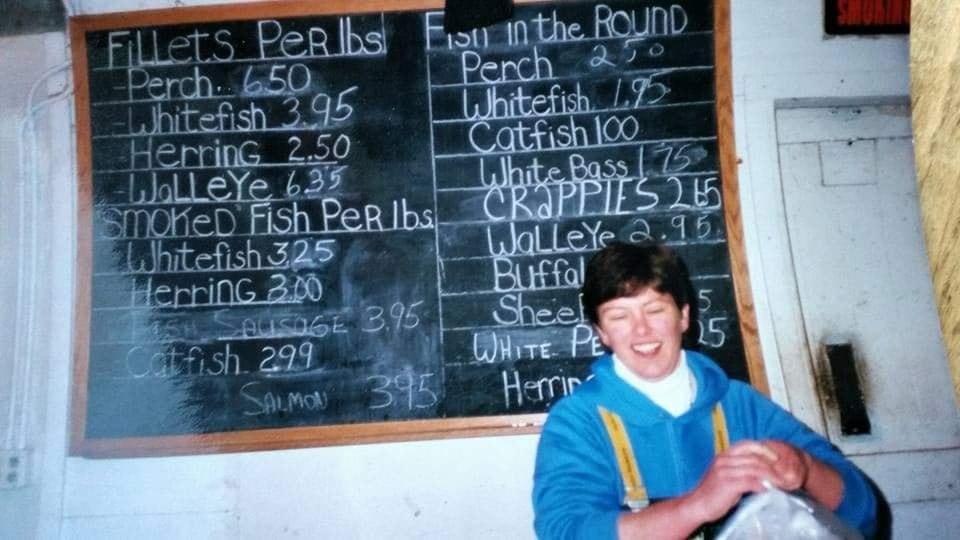 Fillets Per lbs
-Perch.. 6.50
-Whitefish 3.95
Herring 2.50
-Walleye 6.35
Smoked Fish Per lbs.
Whitefish 3.25
Herring 3.00
Fish Sausage 3.95
Catfish 2.99
Salmon 3.95
Fish in the Round
Perch 2.50
Whitefish 1.95
Catfish 100
White Bass 1.75
CRAPPIES 2.65
Walleye 2.95
Buffal
Shee 5
White Pe 25
Herrin
SMOKIN